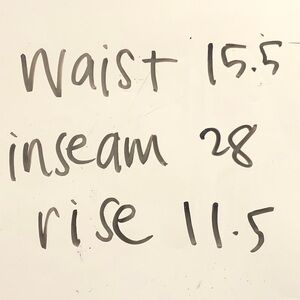 waist 15.5
inseam 28
rise 11.5